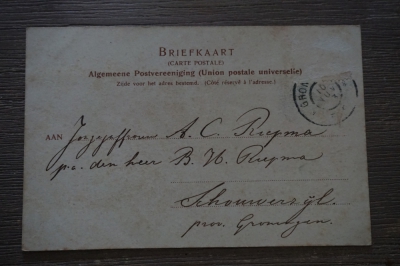 BRIEFKAART
(CARTE POSTALE)
Algemeene Postvereeniging (Union postale universelle)
Zijde voor het adres bestemd. (Côté réservé à l'adresse.)
GRON
AAN Jongejuffrouw A. C. Riepma
p.a. den heer B. H. Riepma
Schouwerzijl
prov. Groningen.